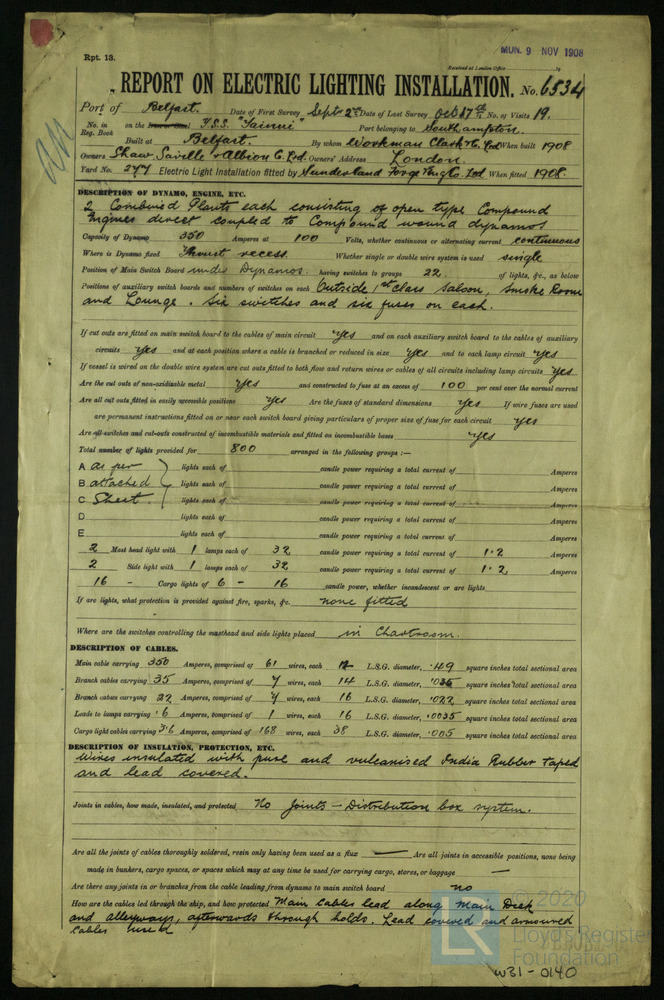 Rpt. 13.
MON. 9 NOV 1908
Received at London Office 19
REPORT ON ELECTRIC LIGHTING INSTALLATION. No. 6534
Port of Belfast. Date of First Survey Sept 2nd Date of Last Survey Oct 27th No. of Visits 19.
No. in Reg. Book on the T.S.S. "Tainui" Port belonging to Southampton.
Built at Belfast. By whom Workman Clark & Co. Ltd When built 1908
Owners Shaw, Saville & Albion C. Ltd. Owners' Address London.
Yard No. 277 Electric Light Installation fitted by Sunderland Forge Eng Co. Ltd When fitted 1908.
DESCRIPTION OF DYNAMO, ENGINE, ETC.
2 Combined Plants each consisting of open type Compound
Engines direct coupled to Compound wound dynamos
Capacity of Dynamo 350 Amperes at 100 Volts, whether continuous or alternating current continuous
Where is Dynamo fixed Thrust recess. Whether single or double wire system is used single
Position of Main Switch Board under Dynamos. having switches to groups 22 of lights, &c., as below
Positions of auxiliary switch boards and numbers of switches on each Outside 1st Class Saloon, Smoke Room
and Lounge. Six switches and six fuses on each.
If cut outs are fitted on main switch board to the cables of main circuit yes and on each auxiliary switch board to the cables of auxiliary
circuits yes and at each position where a cable is branched or reduced in size yes and to each lamp circuit yes
If vessel is wired on the double wire system are cut outs fitted to both flow and return wires or cables of all circuits including lamp circuits yes
Are the cut outs of non-oxidizable metal yes and constructed to fuse at an excess of 100 per cent over the normal current
Are all cut outs fitted in easily accessible positions yes Are the fuses of standard dimensions yes If wire fuses are used
are permanent instructions fitted on or near each switch board giving particulars of proper size of fuse for each circuit yes
Are all switches and cut-outs constructed of incombustible materials and fitted on incombustible bases yes
Total number of lights provided for 800 arranged in the following groups :—
A as per lights each of candle power requiring a total current of Amperes
B attached lights each of candle power requiring a total current of Amperes
C Sheet. lights each of candle power requiring a total current of Amperes
D lights each of candle power requiring a total current of Amperes
E lights each of candle power requiring a total current of Amperes
2 Mast head light with 1 lamps each of 32 candle power requiring a total current of 1.2 Amperes
2 Side light with 1 lamps each of 32 candle power requiring a total current of 1.2 Amperes
16 - Cargo lights of 6 - 16 candle power, whether incandescent or arc lights
If arc lights, what protection is provided against fire, sparks, &c. none fitted
Where are the switches controlling the masthead and side lights placed in Chartroom.
DESCRIPTION OF CABLES.
Main cable carrying 350 Amperes, comprised of 61 wires, each 12 L.S.G. diameter, .49 square inches total sectional area
Branch cables carrying 35 Amperes, comprised of 7 wires, each 14 L.S.G. diameter, square inches total sectional area
Branch cables carrying 22 Amperes, comprised of 7 wires, each 16 L.S.G. diameter, .022 square inches total sectional area
Leads to lamps carrying .6 Amperes, comprised of 1 wires, each 16 L.S.G. diameter, .0035 square inches total sectional area
Cargo light cables carrying 3.6 Amperes, comprised of 168 wires, each 38 L.S.G. diameter, .005 square inches total sectional area
DESCRIPTION OF INSULATION, PROTECTION, ETC.
Wires insulated with pure and vulcanised India Rubber Taped
and lead covered.
Joints in cables, how made, insulated, and protected No Joints - Distribution box system.
Are all the joints of cables thoroughly soldered, resin only having been used as a flux — Are all joints in accessible positions, none being
made in bunkers, cargo spaces, or spaces which may at any time be used for carrying cargo, stores, or baggage —
Are there any joints in or branches from the cable leading from dynamo to main switch board no
How are the cables led through the ship, and how protected Main Cables lead along main Deck
and alleyways, afterwards through holds. Lead covered and armoured
Cables used
© 2020
Lloyd's Register
Foundation
W31-0140